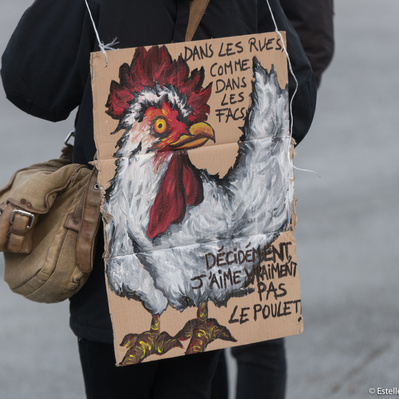 DANS LES RUES
COMME
DANS
LES
FACS
DÉCIDÉMENT,
J'AIME VRAIMENT
PAS
LE POULET!
© Estelle